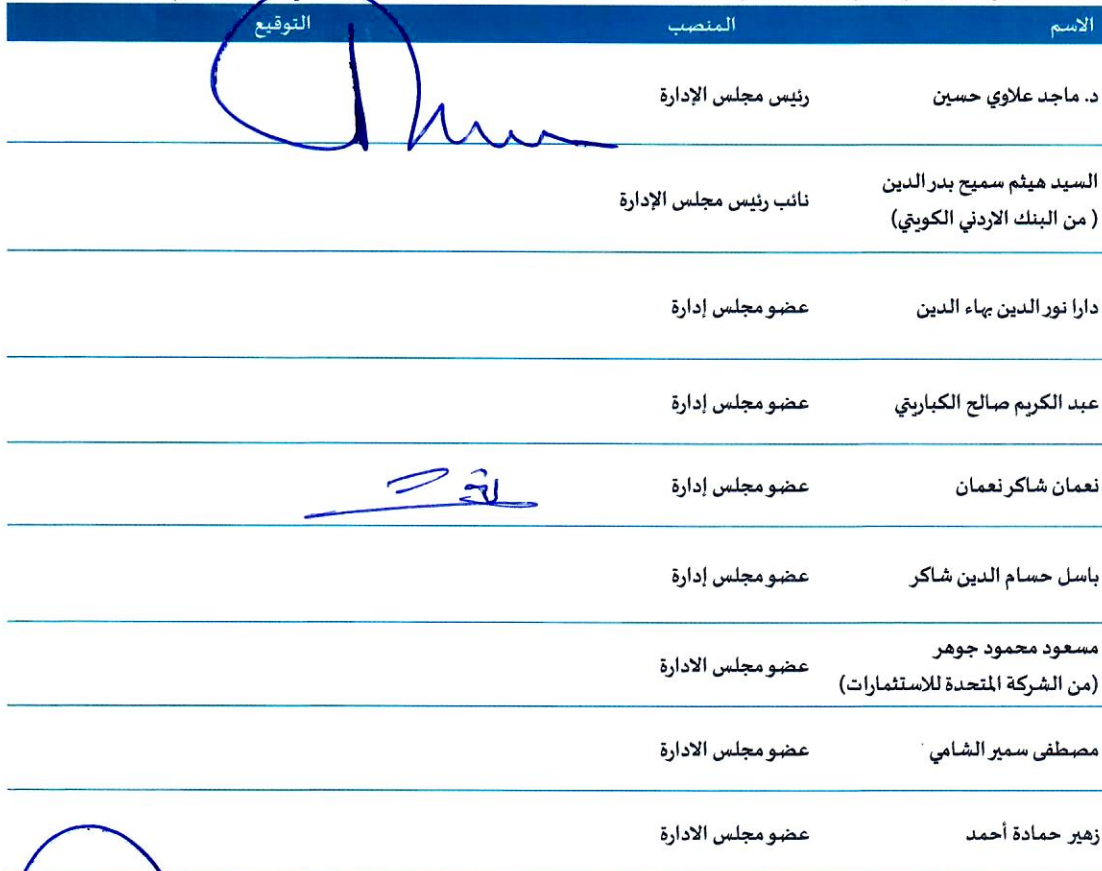 الاسم المنصب التوقيع
د. ماجد علاوي حسين رئيس مجلس الإدارة
السيد هيثم سميح بدر الدين
( من البنك الاردني الكويتي) نائب رئيس مجلس الإدارة
دارا نور الدين بهاء الدين عضو مجلس إدارة
عبد الكريم صالح الكباريتي عضو مجلس إدارة
نعمان شاكر نعمان عضو مجلس إدارة
باسل حسام الدين شاكر عضو مجلس إدارة
مسعود محمود جوهر
(من الشركة المتحدة للاستثمارات) عضو مجلس الادارة
مصطفى سمير الشامي عضو مجلس الادارة
زهير حمادة أحمد عضو مجلس الادارة